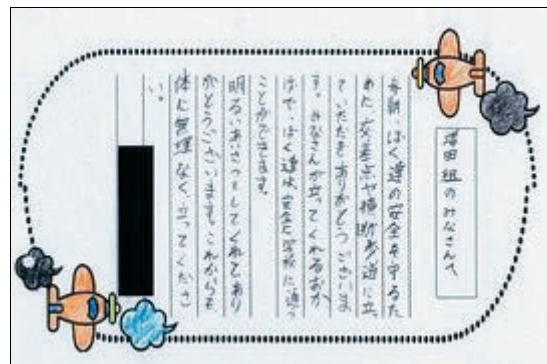 塚田組のみなさんへ
毎朝、ぼく達の安全を守るた
めに、交差点や横断歩道に立っ
ていただきありがとうございま
す。みなさんが立ってくれるおか
げで、ぼく達は、安全に学校に通う
ことができます。
明るいあいさつをしてくれてあり
がとうございます。これからも
体に無理なく、立ってくださ
い。